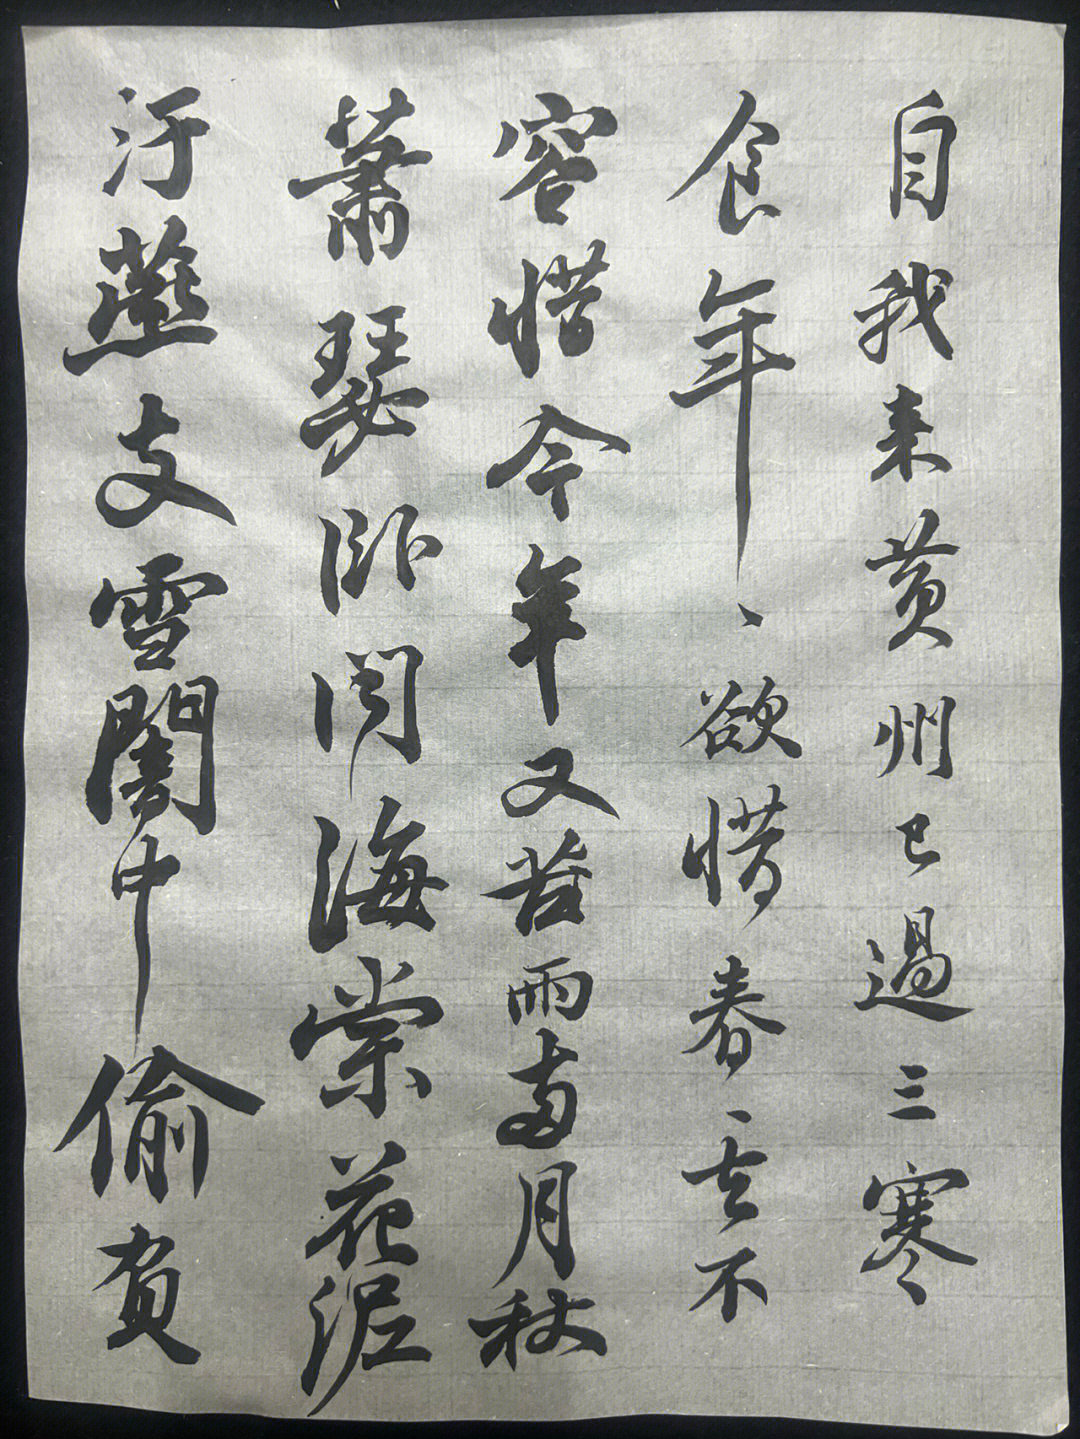 自我来黄州已過三寒
食年、欲惜春、去不
容惜今年又苦雨兩月秋
蕭瑟卧聞海棠花泥
汙燕支雪闇中偷負